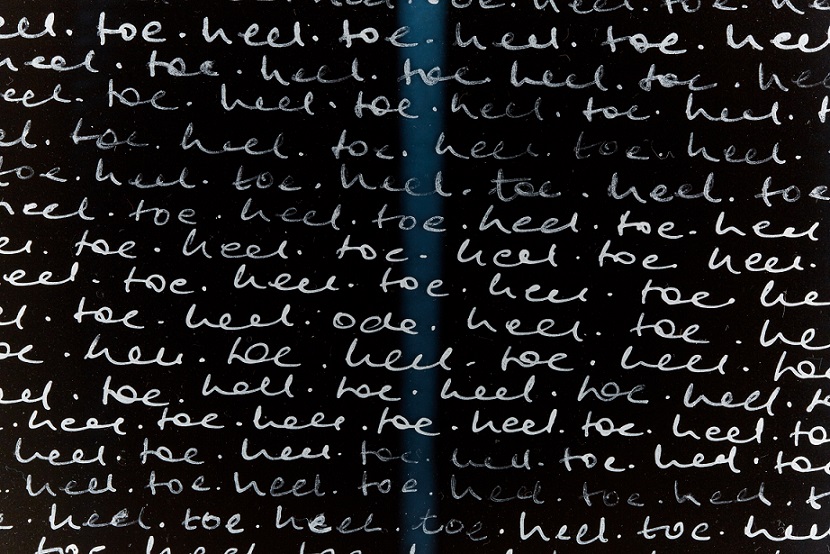 heel. toe. heel. toe. heel.
eel. toe. heel. toe. heel. toe. heel
heel. toe. heel. toe. heel. toe. he
eel. toe. heel. toe. heel. toe. heel. t
el. toe. heel. toe. heel. toe. heel.
toe. heel. toe. heel. toe. heel. toe
heel. toe. heel. toe. heel. toe. heel
el. toe. heel. toe. heel. toe. heel.
eel. toe. heel. toe. heel. toe. he
l. toe. heel. ode. heel. toe. he
oe. heel. toe. heel. toe. heel. toe
el. toe. heel. toe. heel. toe. heel. t
. heel. toe. heel. toe. heel. toe. heel. to
heel. toe. heel. toe. heel. toe. heel. toe
. heel. toe. heel. toe. heel. toe. heel. t
. heel. toe. heel. toe. heel. toe. heel
toe. heel. toe. heel